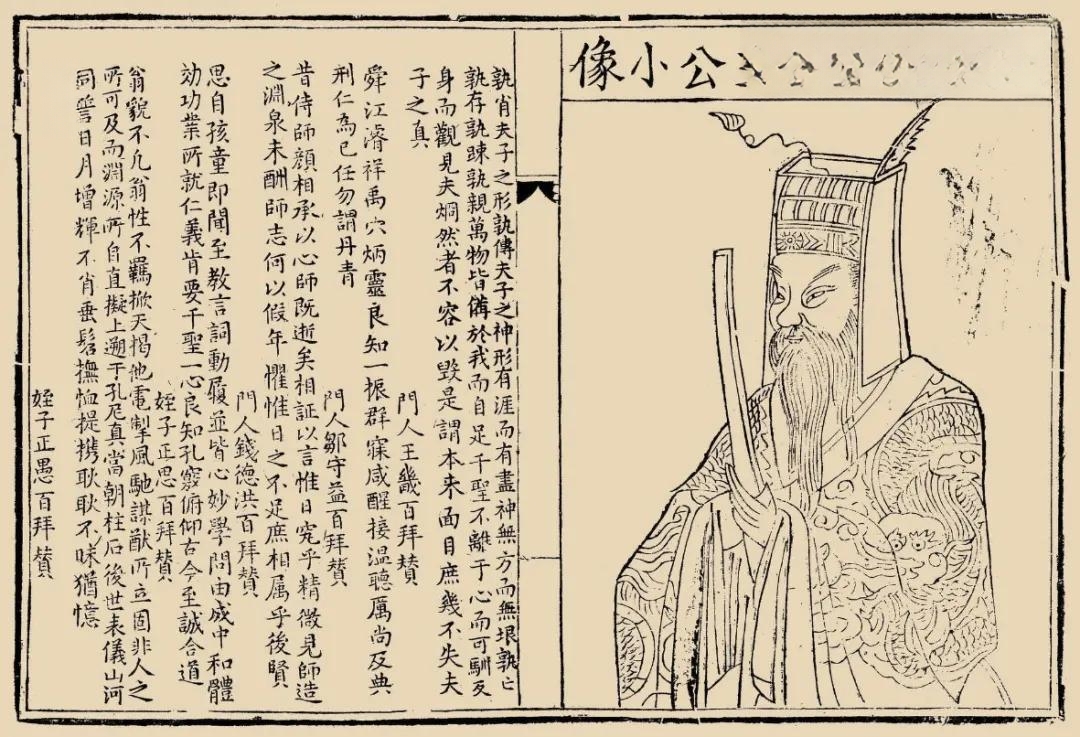 公小像
孰肖夫子之形孰傳夫子之神形有涯而有盡神無方而無垠孰亡
孰存孰踈孰親萬物皆備於我而自足千聖不離于心而可馴反
身而觀見夫烱然者不容以毀是謂本来面目庶幾不失夫
子之真
門人王畿百拜賛
舜江濬祥禹穴炳靈良知一振群寐咸醒接温聽厲尚及典
刑仁為已任勿謂丹青
門人鄒守益百拜賛
昔侍師顔相承以心師既逝矣相証以言惟日究乎精微見師造
之淵泉未酬師志何以假年懼惟日之不足庶相属乎後賢
門人錢德洪百拜賛
思自孩童即聞至教言詞動履並皆心妙學問由成中和體
効功業所就仁義肯要千聖一心良知孔竅俯仰古今至誠合道
姪子正思百拜賛
翁貌不凢翁性不羈掀天揭地電掣風馳謀猷所立固非人之
所可及而淵源所自直擬上遡于孔尼真當朝柱石後世表儀山河
同誓日月增輝不肖垂髫撫恤提携耿耿不昧猶憶
姪子正愚百拜賛